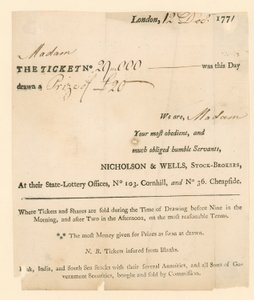 London, 12 Decr. 1771
Madam
THE TICKET No. 29,000 was this Day
drawn a Prize of £20
We are, Madam
Your most obedient, and
much obliged humble Servants,
NICHOLSON & WELLS, STOCK-BROKERS,
At their State-Lottery Offices, No 103. Cornhill, and No 36. Cheapside.
Where Tickets and Shares are sold during the Time of Drawing before Nine in the
Morning, and after Two in the Afternoon, on the most reasonable Terms.
*** The most Money given for Prizes as soon as drawn.
N. B. Tickets insured from Blanks.
Bank, India, and South Sea Stocks with their several Annuities, and all Sorts of Government Securities, bought and sold by Commission.